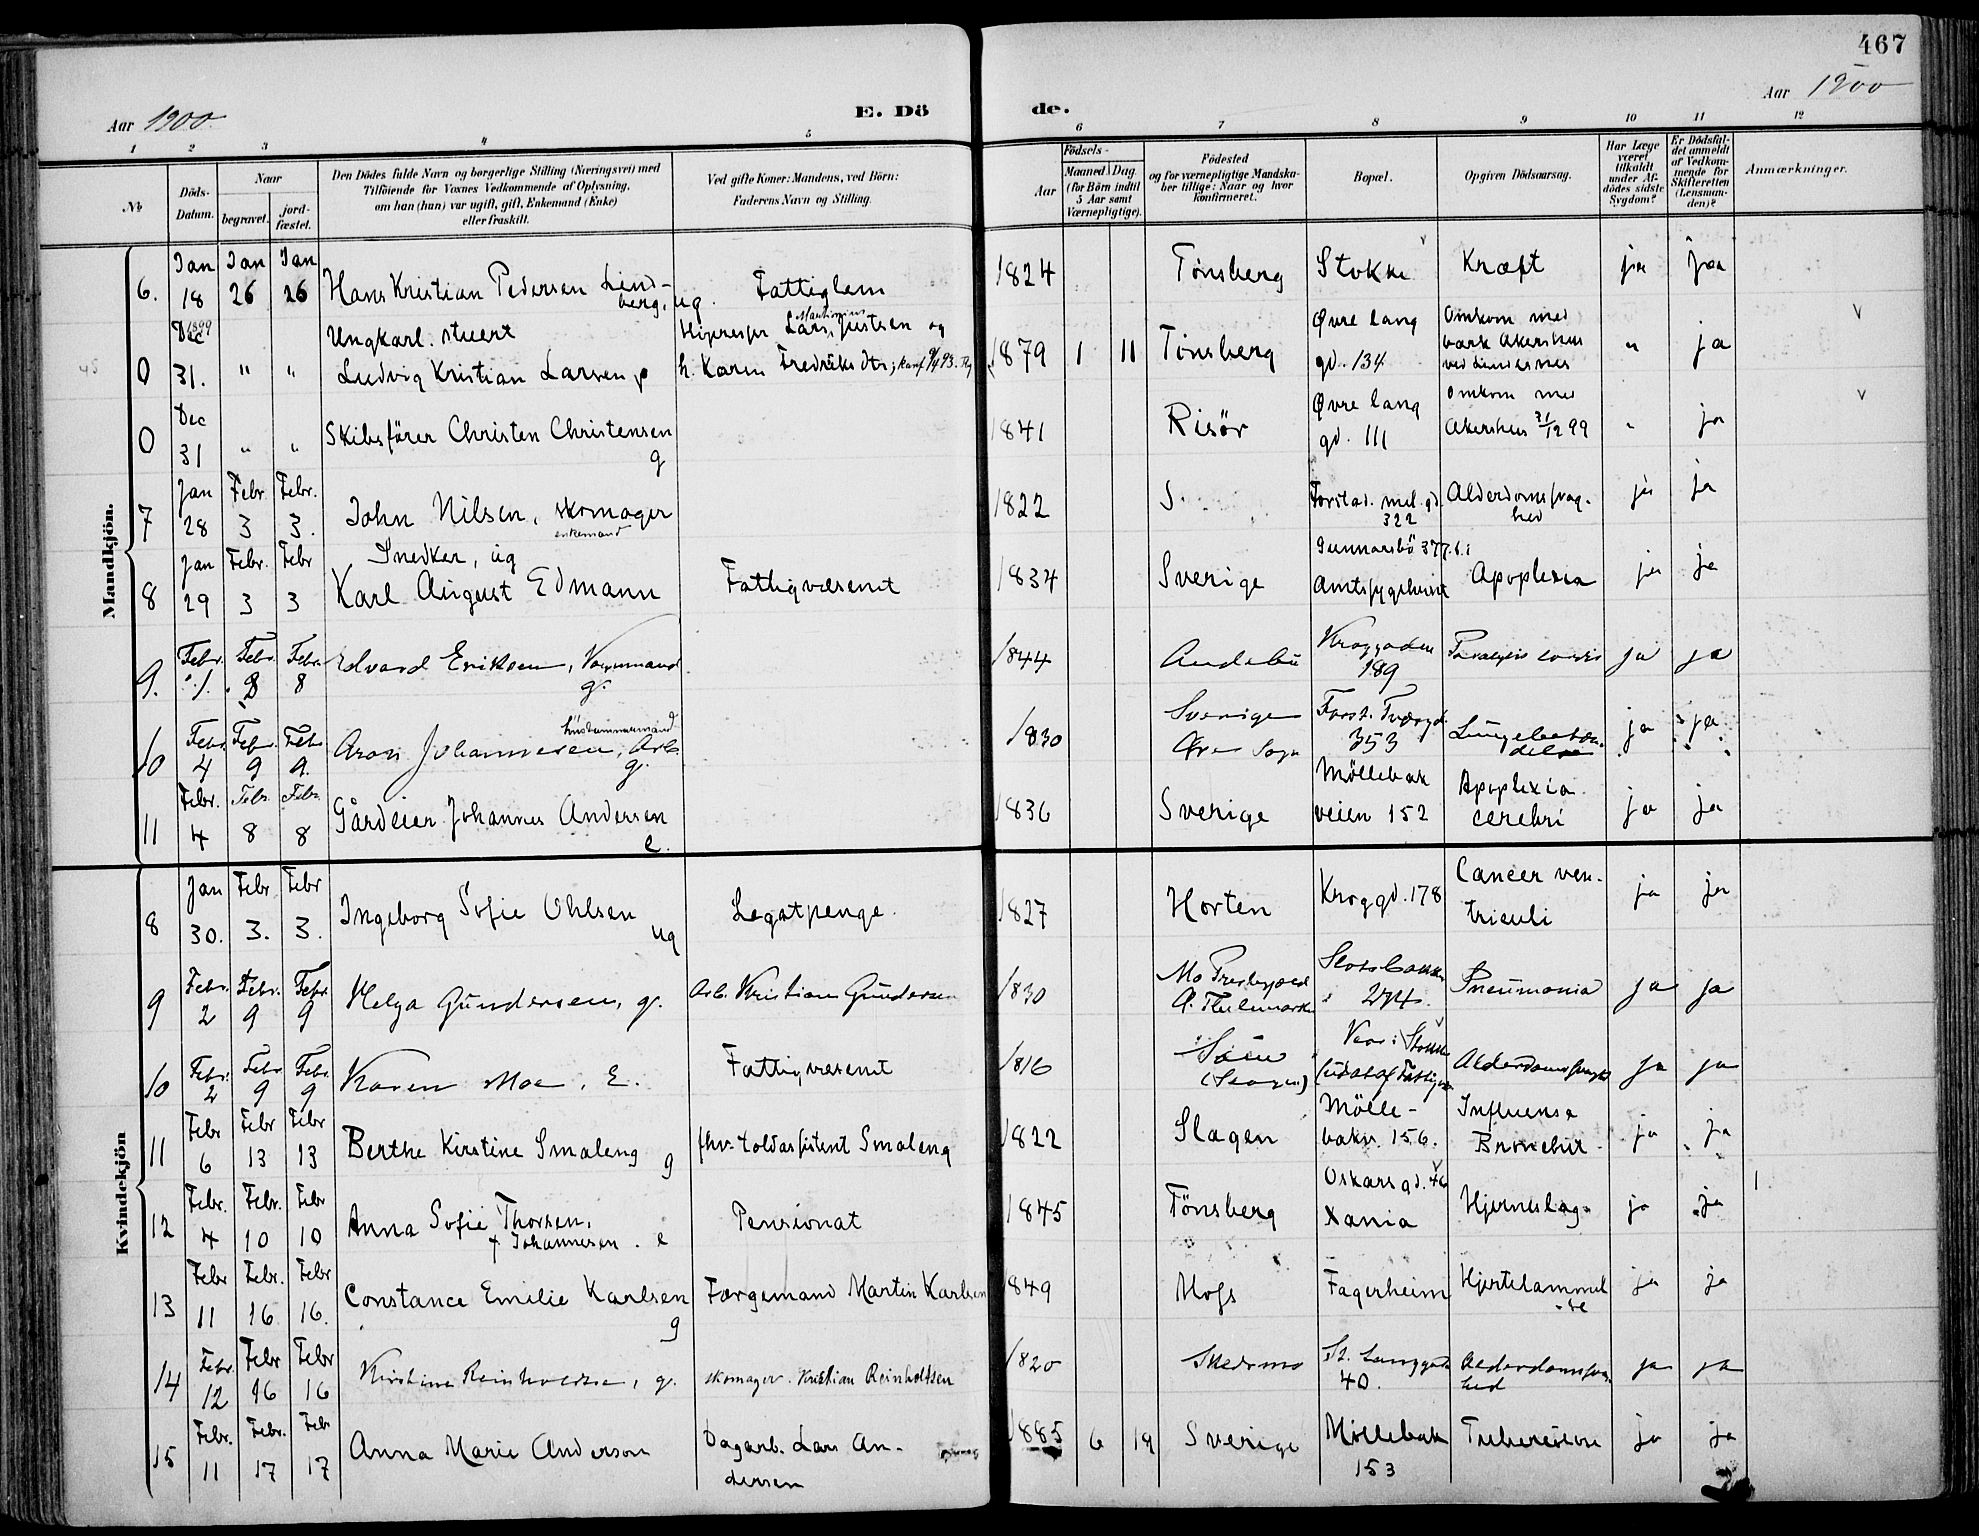 467
Aar 1900.
E. Dö
de.
Aar 1900
1 2 3 4 5 6 7 8 9 10 11 12
№
Döds-Datum.
Naar
begravet.
jord-fæstet.
Den Dödes fulde Navn og borgerlige Stilling (Næringsvei) med
Tilföiende for Voxnes Vedkommende af Oplysning,
om han (hun) var ugift, gift, Enkemand (Enke)
eller fraskilt.
Ved gifte Koner: Mandens, ved Börn:
Faderens Navn og Stilling.
Födsels-
Aar
Maaned
Dag
(for Börn indtil
5 Aar samt
Værnepligtige).
Födested
og for værnepligtige Mandska-
ber tillige: Naar og hvor
konfirmeret.
Bopæl.
Opgiven Dödsaarsag.
Har Læge
været
tilkaldt
under Af-
dödes sidste
Sygdom?
Er Dödsfal-
det anmeldt
af Vedkom-
mende for
Skifteretten
(Lensman-
den)?
Anmærkninger.
Mandkjön.
6. Jan 18 Jan 26 Jan 26 Hans Kristian Pedersen Lind-
berg, ug. Fattiglem 1824 Tönsberg Stokke Kræft ja ja
0 1899 Dec 31. " " Ungkarl. stuert
Ludvig Kristian Larsen Lars Martinius Justsen og
h. Karen Fredriksdtr; 1879 1 11 Tönsberg Øvre lang
gd. 134 Omkom med
bark Akershus
ved Lindesnes " ja
0 Dec 31 " " Skibsförer Christen Christensen
g 1841 Risör Øvre lang
gd. 111 Omkom med
Akershus 31/12 99 " ja
7 Jan 28 Febr. 3 Febr. 3. John Nilsen, skomager
enkemand 1822 S. 322 Alderdomssvag-
hed ja ja
8 Jan 29 Febr. 3 Febr 3 Snedker, ug
Karl August Edmann Fattigvæsenet 1834 Sverige Gunnarsbö 377.
Amtssygehuset Apoplexia ja ja
9. Febr. 1. Febr. 8 Febr. 8 Edvard Eriksen, Vognmand
g. 1844 Andebu Kroggaden
189 Paralysis cordis ja ja
10 Febr. 4 Febr. 9 Febr 9. Aron Johannesen, Arb.
g. 1830 Sverige
Sogn 353 Lungebetæn-
delse ja ja
11 Febr. 4 Febr. 8 Febr. 8 Gårdeier Johannes Andersen
e. 1836 Sverige Möllebak
veien 152 Apoplexia
cerebri ja ja
Kvindekjön
8 Jan 30. Febr 3. Febr 3. Ingeborg Sofie Ohlsen
ug Legatpenge. 1827 Horten Kroggd. 178 Cancer ven-
triculi ja ja
9 Febr. 2 Febr. 9 Febr. 9 Helga Gundersen, g. Arb. Kristian Gundersen 1830 Mo Prestegjæld
Ø. Thelemarken Slotsbakken
274. Pneumonia ja ja
10 Febr. 2 Febr. 9 Febr. 9 Karen Moe, E. Fattigvæsenet 1816 Sæm
(Slagen) Alderdomssvaghed ja ja
11 Febr 6 Febr 13 Febr 13 Berthe Kirstine Smaleng g fhv. toldassistent Smaleng 1822 Slagen Mölle-
bakv. 156. Influensa
ja ja
12 Febr. 4 Febr. 10 Febr 10 Anna Sofie Thorsen,
f Johannesen. e Pensionat 1845 Tönsberg Oskarsgd. 46
Xania Hjerneslag ja ja
13 Febr 11 Febr. 16 Febr 16. Constance Emilie Karlsen
g Færgemand Martin Karlsen 1849 Moss Fagerheim Hjertelammel
-se ja ja
14 Febr. 12 Febr 16 Febr 16 Kirstine Reinholdtsen, g. skomager. Kristian Reinholtsen 1820 Skedsmo St. Langgade
40. Alderdomssvag-
hed ja ja
15 Febr. 11 Febr. 17 Febr 17 Anna Marie Anderson Dagarb. Lars An-
dersen 1885 6 19 Sverige Möllebak
153 Tuberculose ja ja